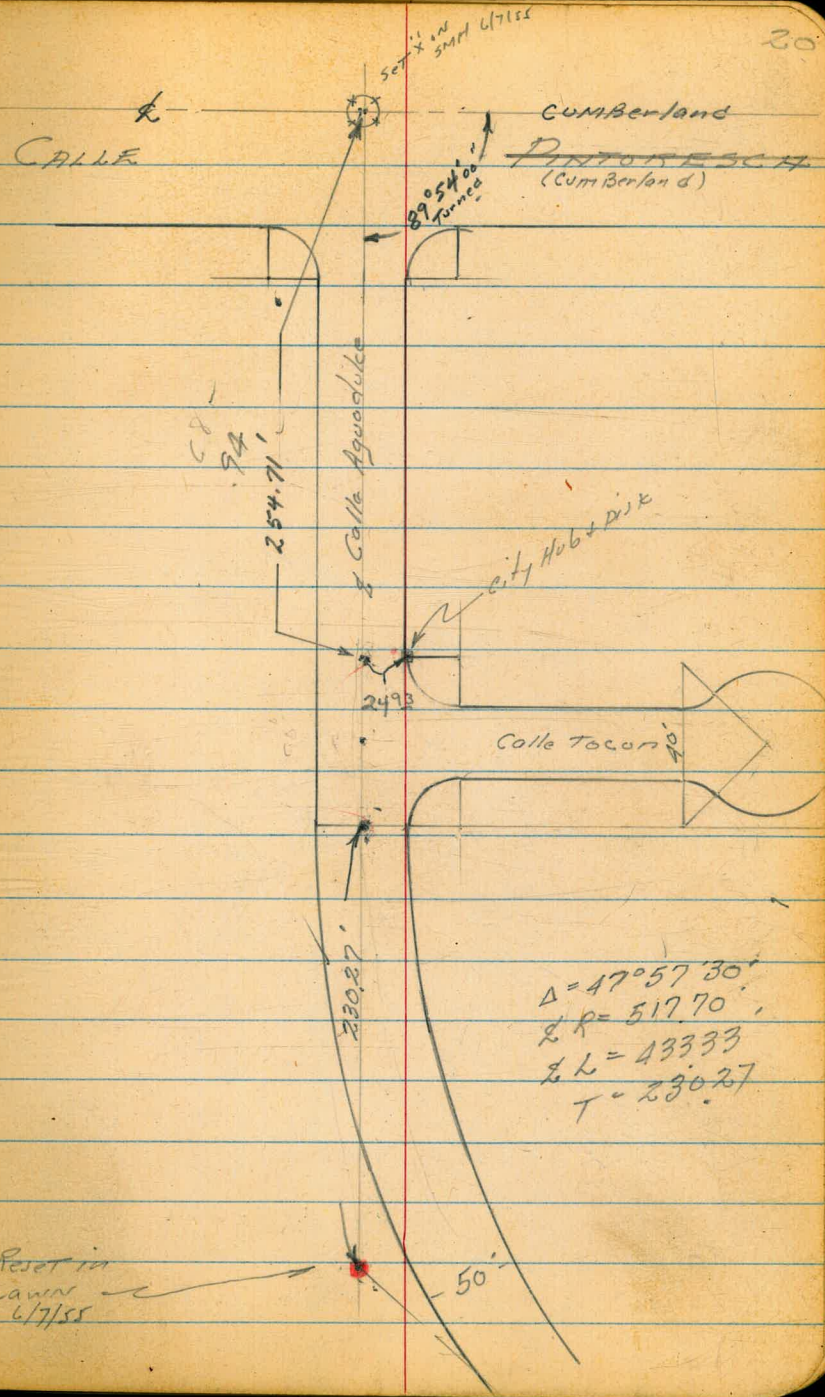 20
Set "X" on
SMH 6/7/55
℄
Cumberland
CALLE
PINTORESCA
(Cumberland)
89°54'00"
Turned
68
.94
254.71'
℄ Calle Aguadulce
City Hub & Disk
2493
Calle Tocon
40'
230.27'
Δ = 47°57'30"
℄ R = 517.70'
℄ L = 433.33
T = 230.27
50'
Reset in
Lawn
6/7/55